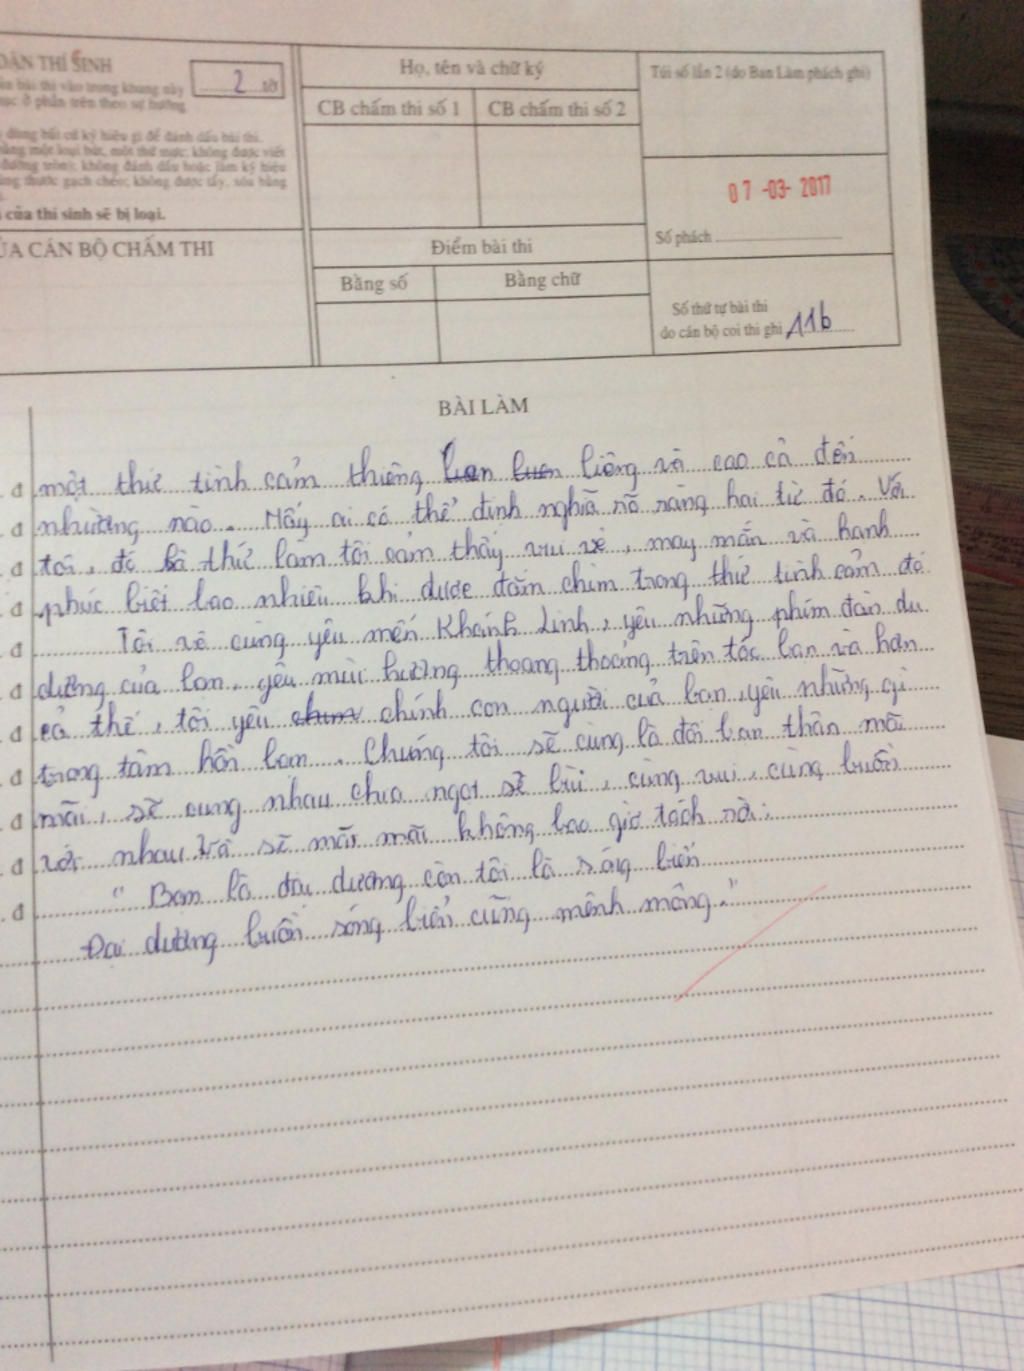 DẪN THÍ SINH
bài thi vào trong khung này
2 tờ
ở phần trên theo sự hướng
dùng bất cứ ký hiệu gì để đánh dấu bài thi.
bằng một loại bút, một thứ mực; không được viết
đường tròn); không đánh dấu hoặc làm ký hiệu
bằng thước gạch chéo; không được tẩy, xóa bằng
của thí sinh sẽ bị loại.
ỦA CÁN BỘ CHẤM THI
Họ, tên và chữ ký
CB chấm thi số 1
CB chấm thi số 2
Điểm bài thi
Bằng số
Bằng chữ
Túi số lần 2 (do Ban Làm phách ghi)
07 -03- 2017
Số phách
Số thứ tự bài thi
do cán bộ coi thi ghi 11b
BÀI LÀM
đ một thứ tình cảm thiêng liêng và cao cả đến
đ nhường nào. Mấy ai có thể định nghĩa rõ ràng hai từ đó. Với
đ tôi, đó là thứ làm tôi cảm thấy vui vẻ, may mắn và hạnh
đ phúc biết bao nhiêu khi được đắm chìm trong thứ tình cảm đó
đ Tôi vô cùng yêu mến Khánh Linh, yêu những phím đàn du
đ dương của bạn, yêu mùi hương thoang thoảng trên tóc bạn và hơn
đ cả thế, tôi yêu chính con người của bạn, yêu những gì
đ trong tâm hồn bạn. Chúng tôi sẽ cùng là đôi bạn thân mãi
đ mãi, sẽ cùng nhau chia ngọt sẻ bùi, cùng vui, cùng buồn
đ với nhau và sẽ mãi mãi không bao giờ tách rời.
đ " Bạn là đại dương còn tôi là sóng biển
Đại dương buồn sóng biển cũng mênh mông."